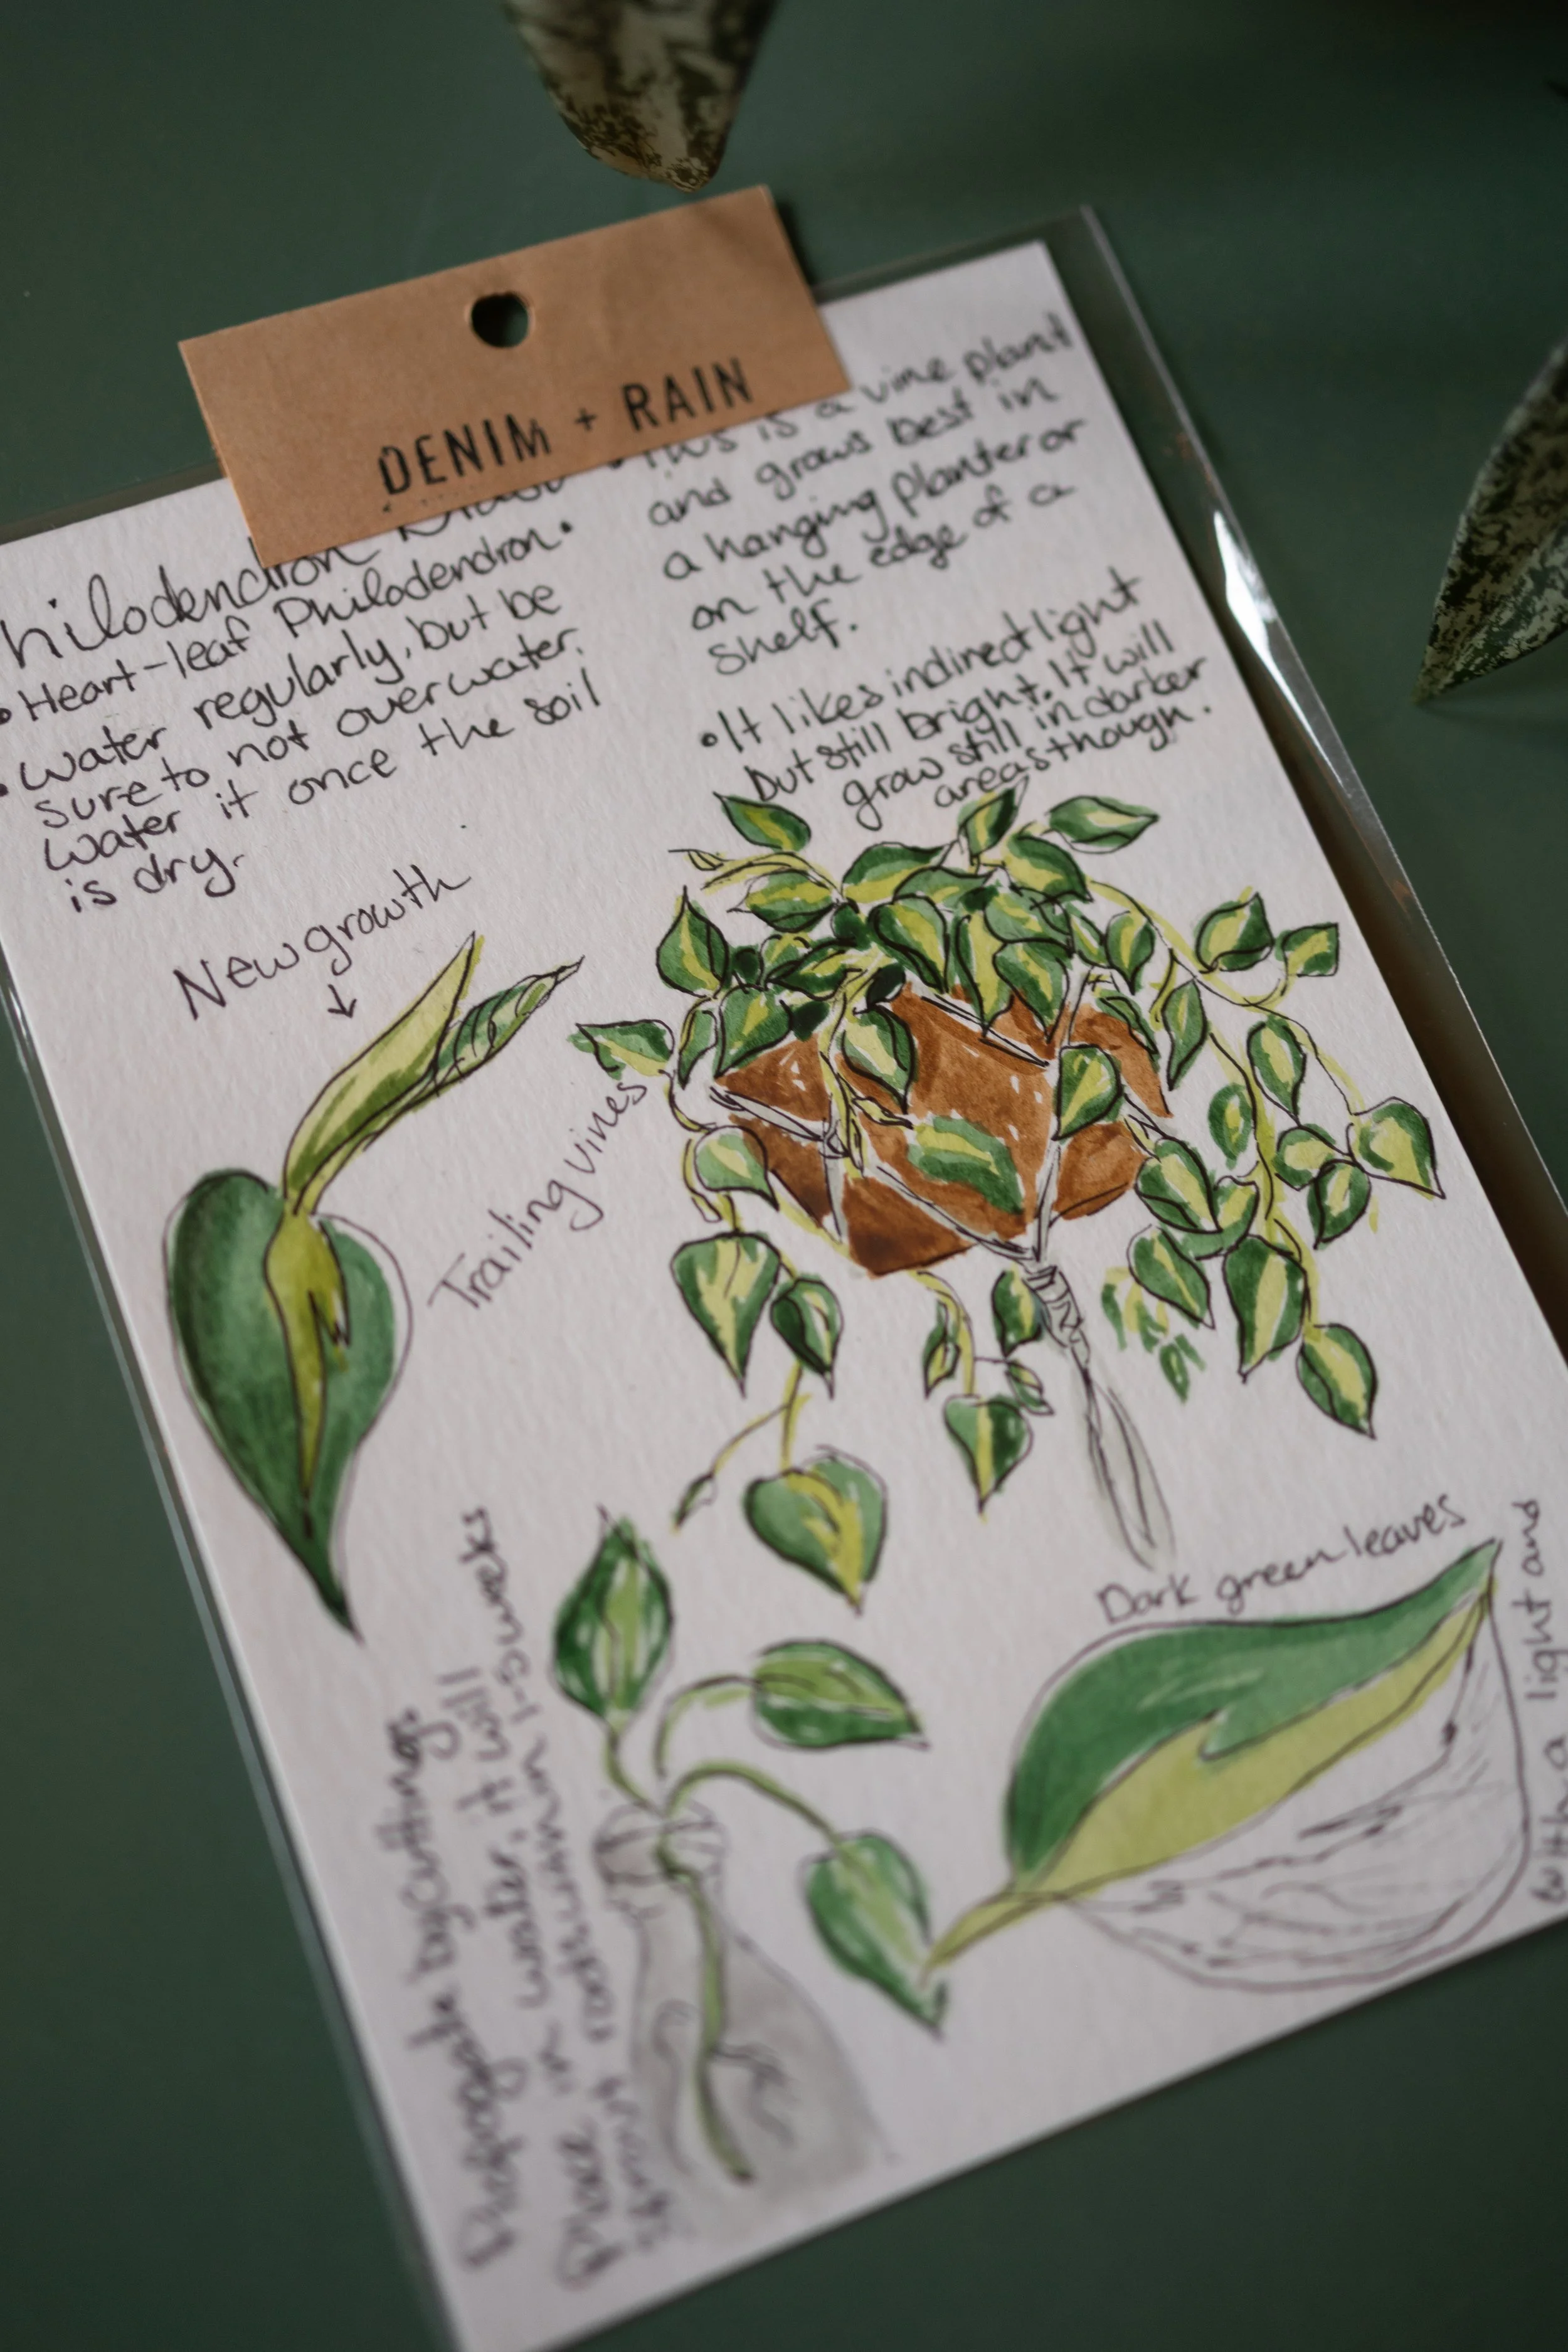 DENIM + RAIN
hilodendron
• Heart-leaf Philodendron •
• Water regularly, but be
sure to not overwater.
Water it once the soil
is dry.
• This is a vine plant
and grows best in
a hanging planter or
on the edge of a
shelf.
• It likes indirect light
but still bright. It will
grow still in darker
areas though.
New growth
↓
Trailing vines
Dark green leaves
Propagate by cuttings
Place in water, it will
sprout roots within 1-3 weeks
with a light and